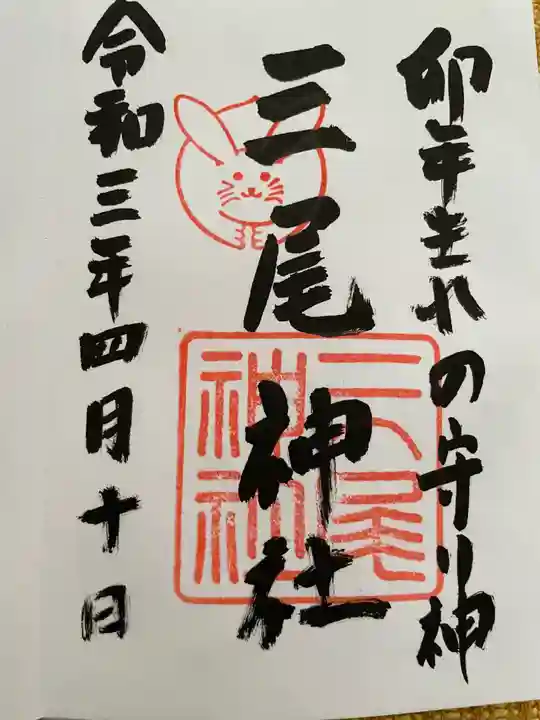 卯年生れの守り神
三尾神社
令和三年四月十日
三尾
神社